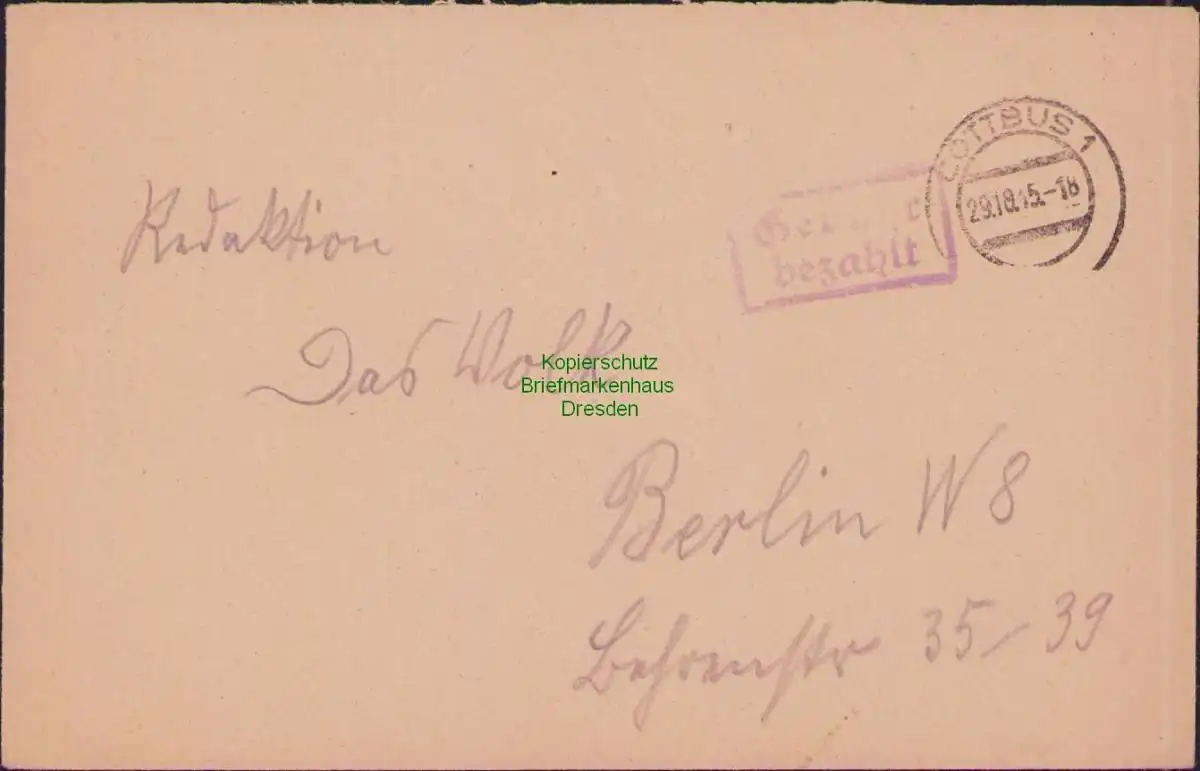 COTTBUS 1
bezahlt
Redaktion
Das Volk
Kopierschutz
Briefmarkenhaus
Dresden
Berlin W 8
Behrenstr 35/39